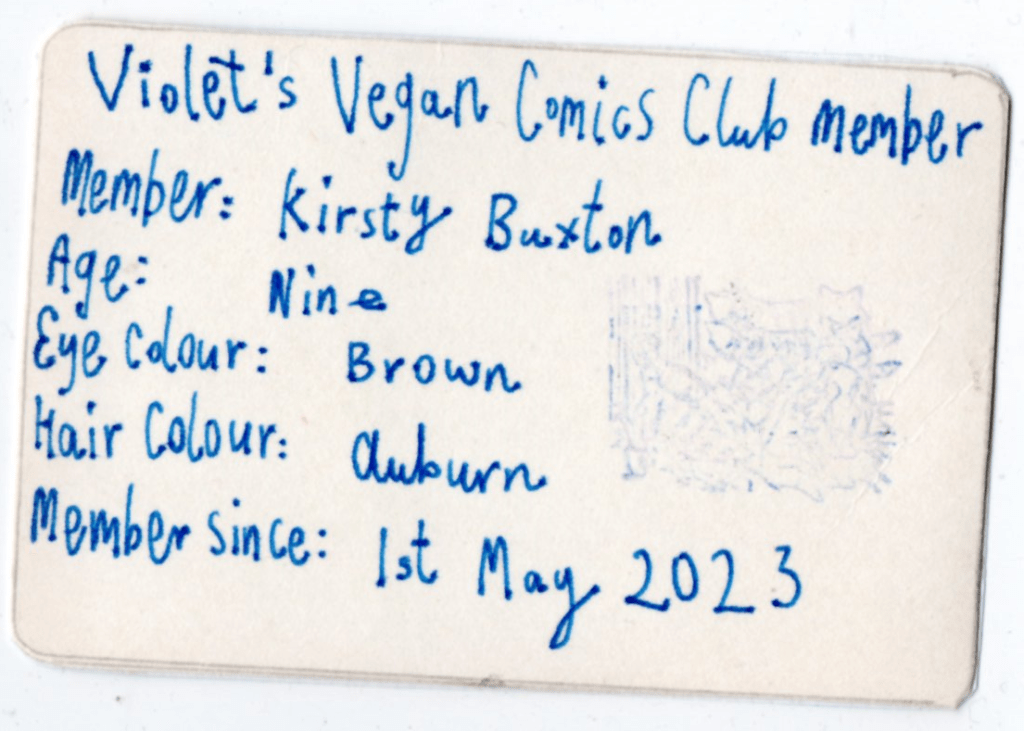 Violet's Vegan Comics Club member
Member: Kirsty Buxton
Age: Nine
Eye Colour: Brown
Hair Colour: Auburn
Member since: 1st May 2023